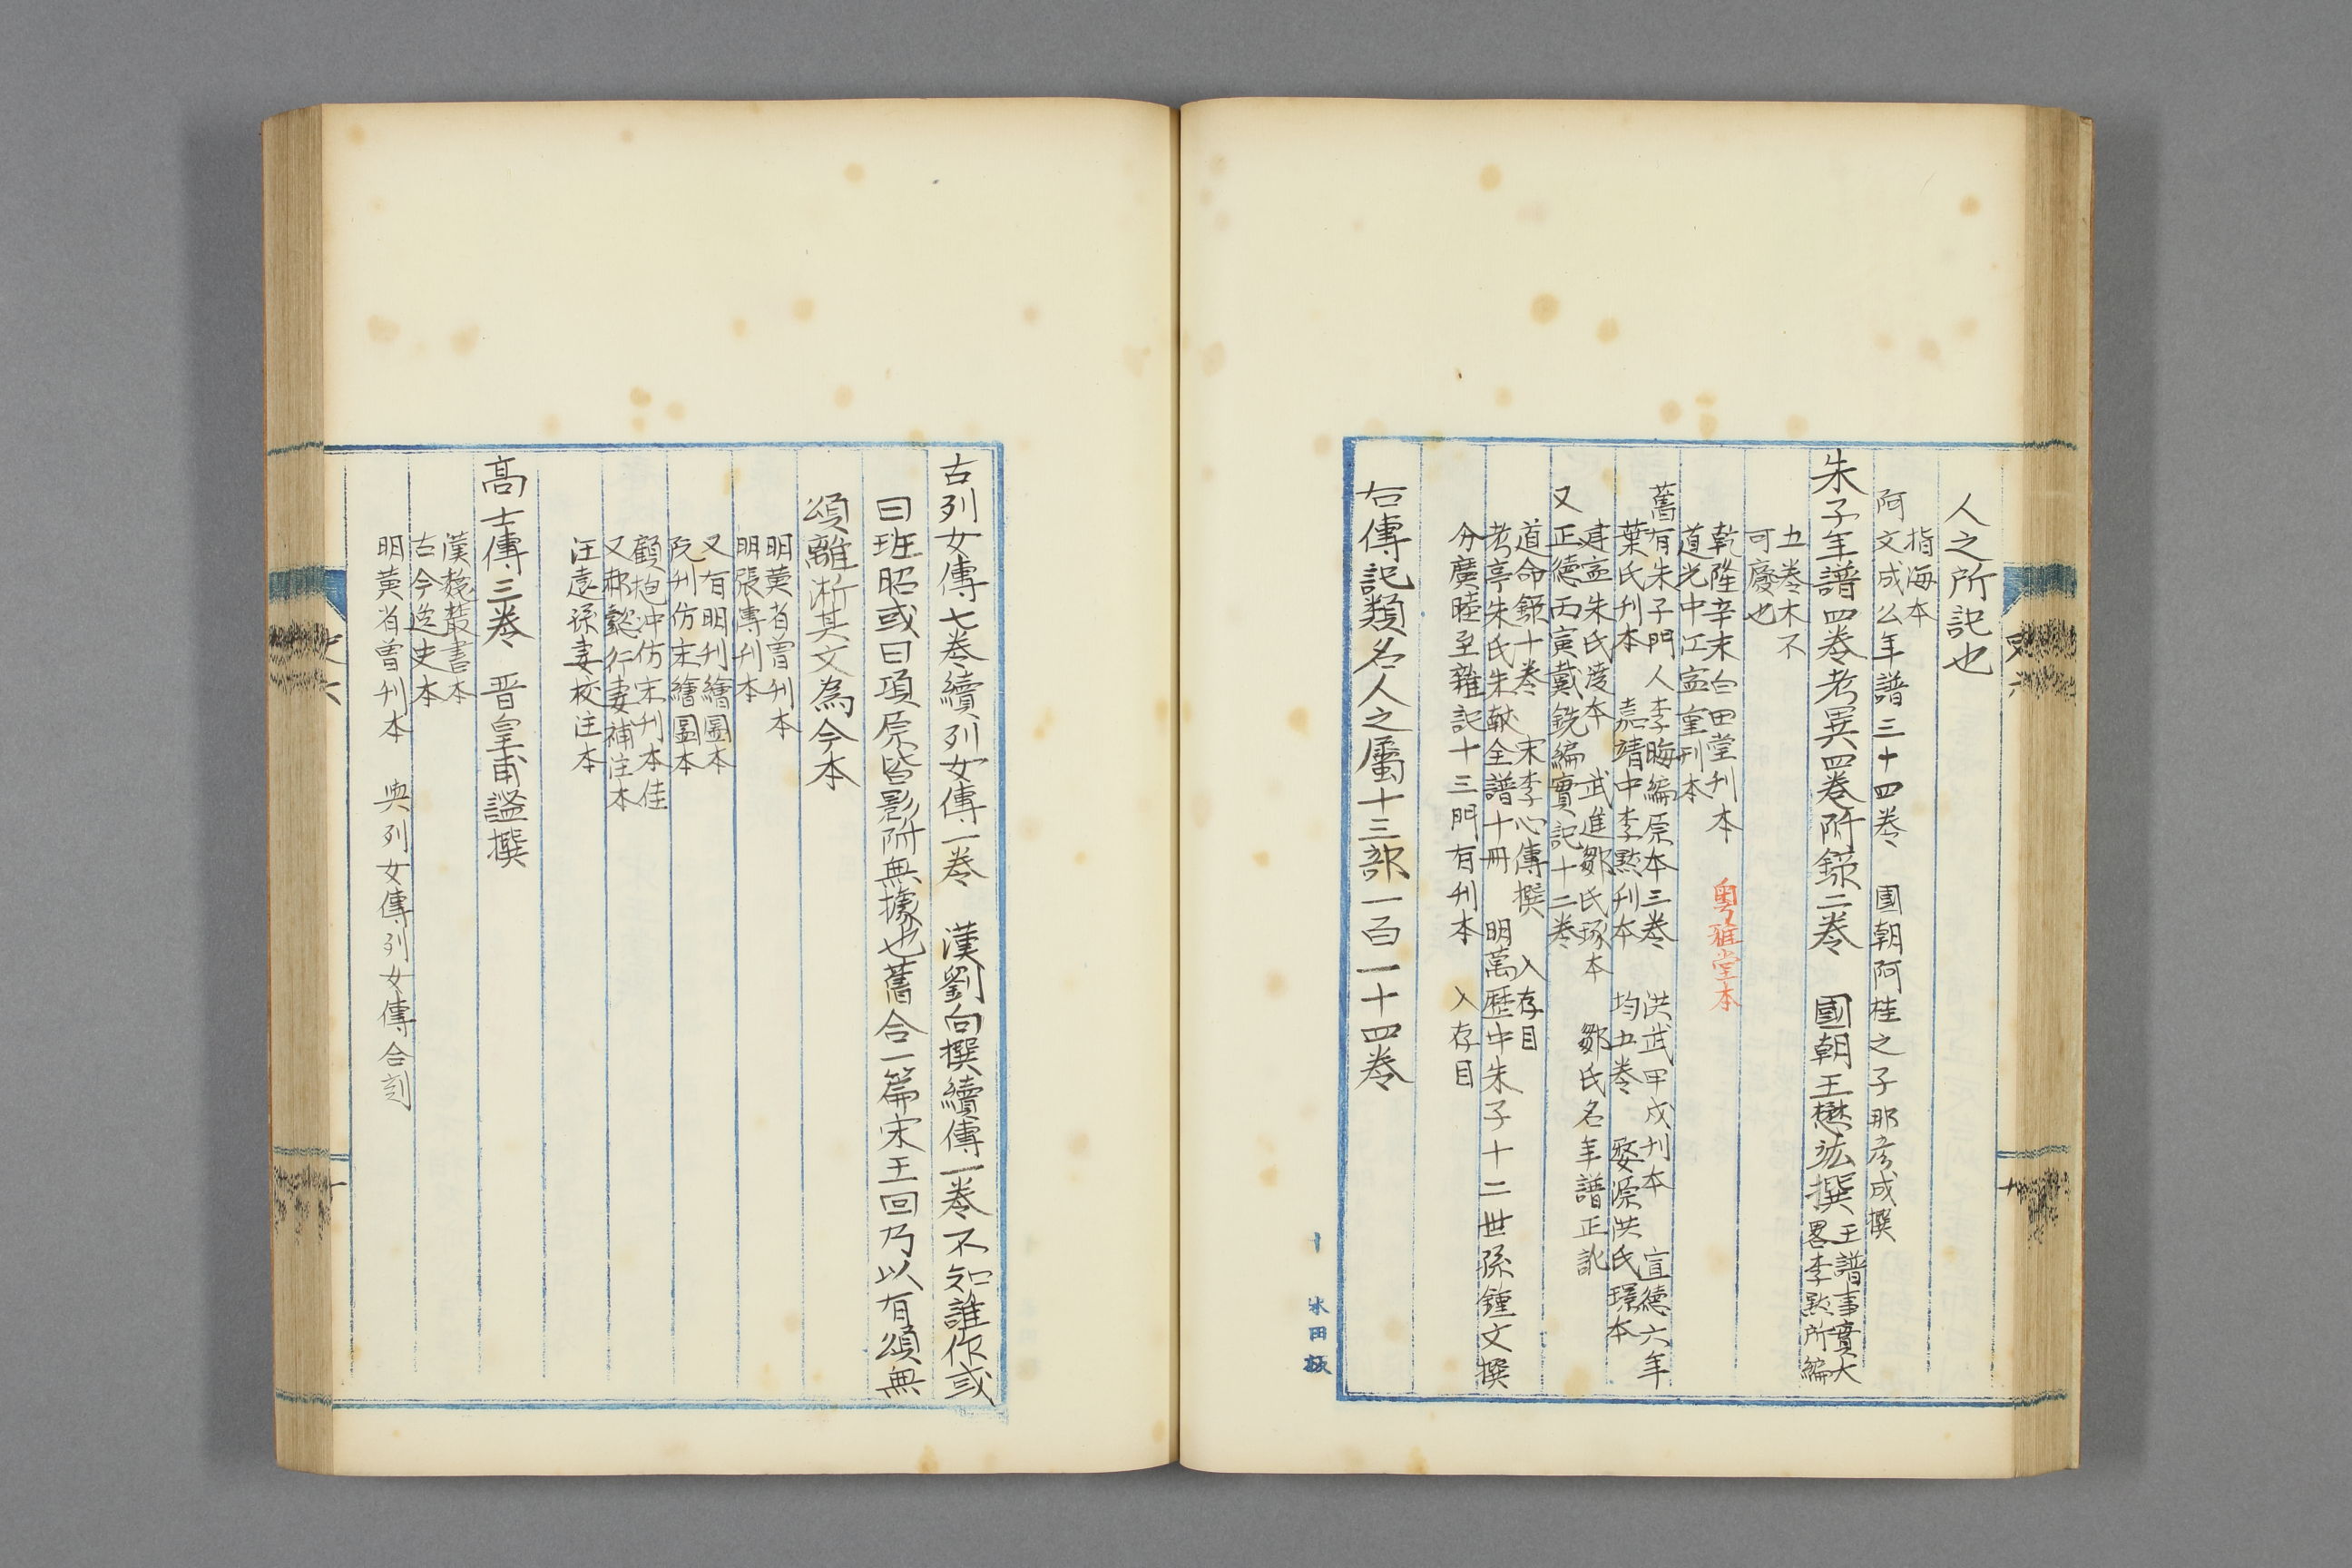 人之所記也
指海本
阿文成公年譜三十四卷 國朝阿桂之子那彥成撰
朱子年譜四卷考異四卷附錄二卷 國朝王懋竑撰
王譜事實大
畧李黙所編
五卷木不
可廢也
乾隆辛未白田堂刊本 粵雅堂本
道光中江寍重刊本
舊有朱子門人李晦編原本三卷 洪武甲戍刊本 宣德六年
葉氏刊本 嘉靖中李黙刊本 均五卷 婺源洪氏璟本
建寍朱氏凌本 武進鄒氏琢本 鄒氏名年譜正訛
又正德丙寅戴銑編實記十二卷
道命錄十卷 宋李心傳撰 入存目
考亭朱氏朱献全譜十冊 明萬歷中朱子十二世孫鍾文撰
分廣睦至雜記十三門有刊本 入存目
右傳記類名人之屬十三部一百一十四卷
史六
十
氷田坂
古列女傳七卷續列女傳一卷 漢劉向撰續傳一卷不知誰作或
曰班昭或曰項原皆影附無㨿也舊合一篇宋王回乃以有頌無
頌離淅其文為今本
明黄省曽刊本
明張傳刊本
又有明刊繪圖本
阮刊仿宋繪圖本
顧抱冲仿宋刊本佳
又郝懿行妻補注本
汪遠孫妻校注本
高士傳三卷 晋皇甫謐撰
漢魏叢書本
古今逸史本
明黄省曽刊本 與列女傳列女傳合刻
史六